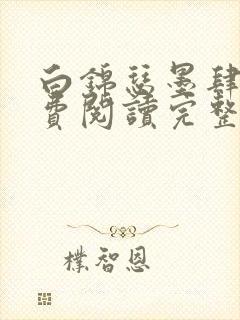 白錦瑟墨肆
費閱讀完整
樸智恩